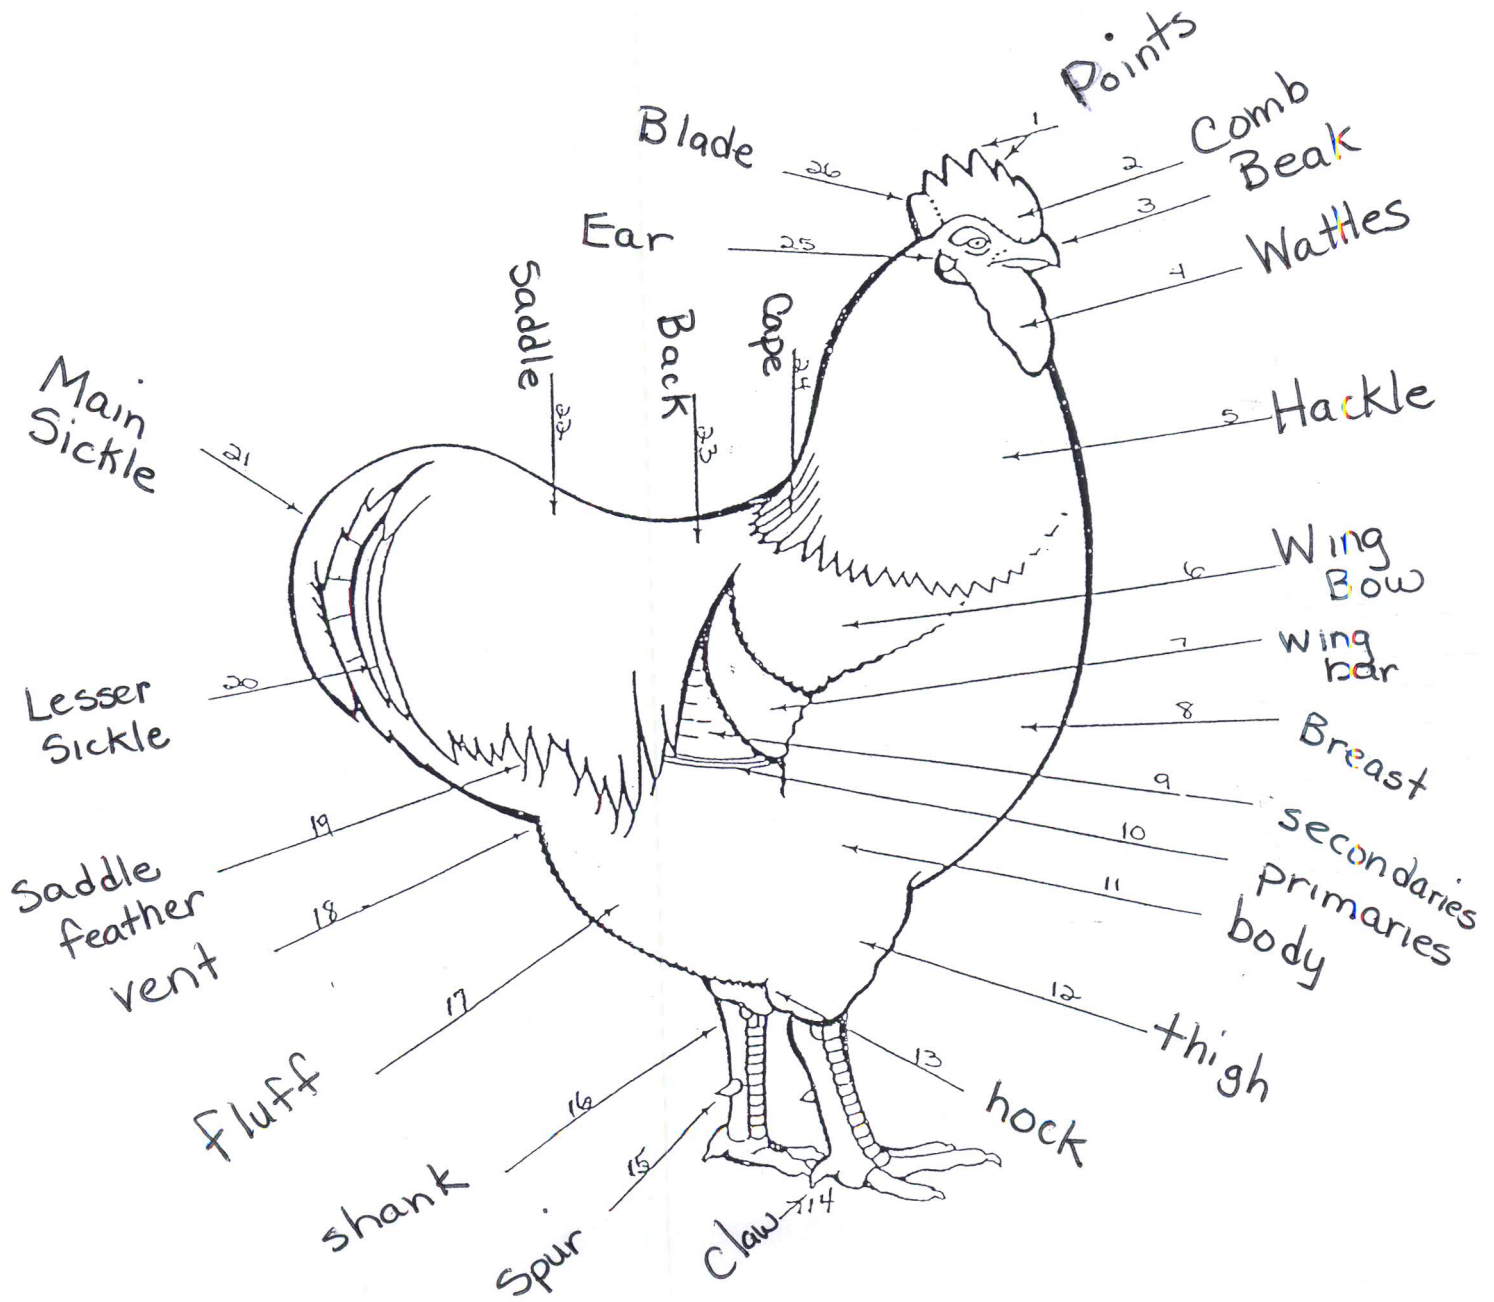 Points
1
Comb
2
Beak
3
Wattles
4
Hackle
5
Wing
Bow
6
wing
bar
7
Breast
8
secondaries
9
primaries
10
body
11
thigh
12
hock
13
Claw
14
Spur
15
shank
16
fluff
17
vent
18
Saddle
feather
19
Lesser
Sickle
20
Main
Sickle
21
Saddle
22
Back
23
Cape
24
Ear
25
Blade
26